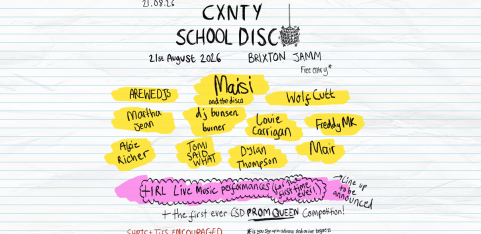 21.08.26
CXNTY
SCHOOL DISCO
21st August 2026 BRIXTON JAMM
Free entry*
AREWEDJS
Maisi
and the disco
Wolf Cutt
Martha Jean
dj bunsen burner
Louie Carrigan
Freddy MK
Algie Richer
TOMI SAID WHAT
Dylan Thompson
Mair
+ IRL Live Music performances (for the first time ever!)
Line up to be announced
+ the first ever CSD PROM QUEEN Competition!
ENCOURAGED